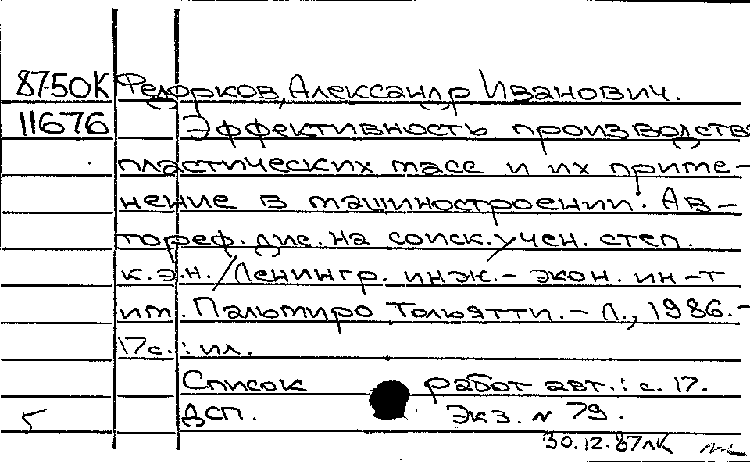 8750К Федорков, Александр Иванович.
11676 Эффективность производств
пластических масс и их приме-
нение в машиностроении: Ав-
тореф. дис. на соиск. учен. степ.
к.э.н. / Ленингр. инж.-экон. ин-т
им. Пальмиро Тольятти. - Л., 1986. -
17с.: ил.
Список работ авт.: с. 17.
5 ДСП. Экз. № 79.
30.12.87 лк